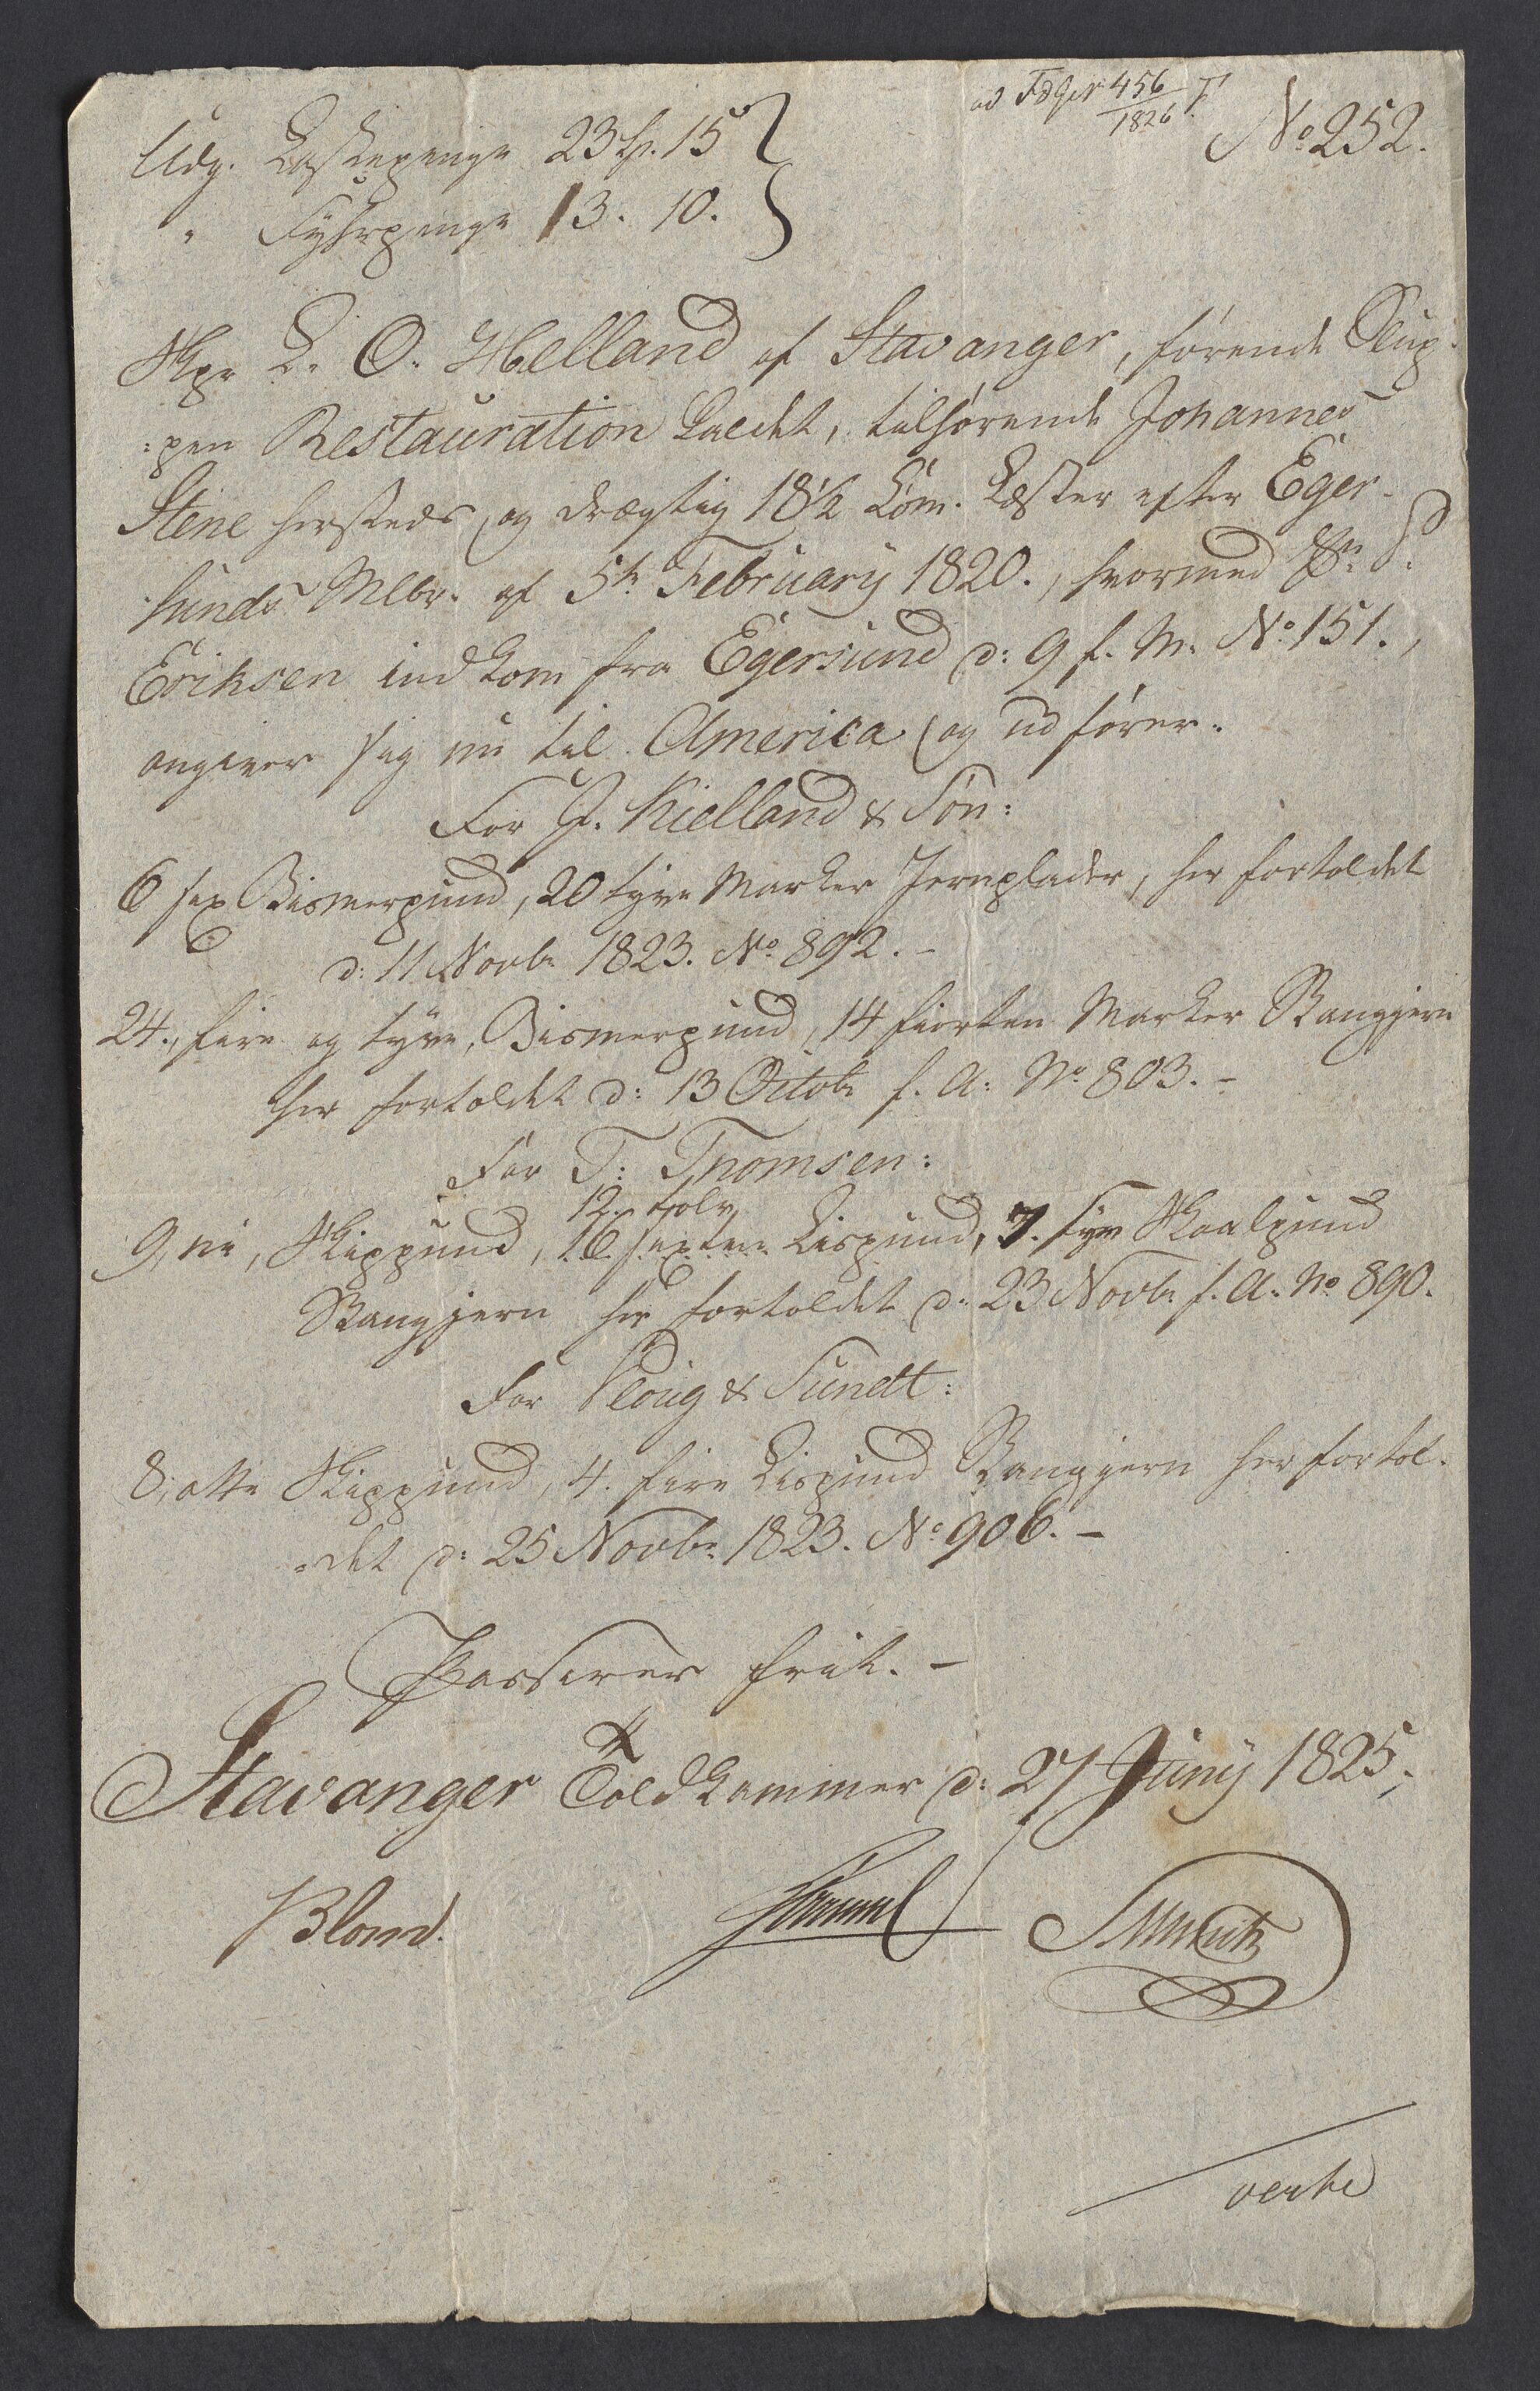 ad Fdgir 456/1826 F.
No 252.
Udg. Læstepenge 23 sp. 15
" Fyhrpenge 13. 10.
Skpr L. O. Helland af Stavanger, førende Slup
:pen Restauration kaldet, tilhørende Johannes
Stene hersteds, og drægtig 18 1/2 Com. Læster efter Eger-
sunds Mlbr. af 5te February 1820., hvormed
Eriksen indkom fra Egersund d: 9 f. M. No 151.,
angiver sig nu til America og udfører.
For J. Kielland & Søn:
6 sex Bismerpund, 20 tyve Marker Jernplader, her fortoldet
d: 11 Novbr 1823. No 892. -
24., fire og tyve, Bismerpund, 14 fiorten Marker Stangjern
her fortoldet d: 13 Octobr f. A: No 803. -
For T: Thomsen:
12. tolv
9, ni, Skippund, 16 sexten Lispund, 7. syv Skaalpund
Stangjern her fortoldet d: 23 Novbr f. A. No 890.
For Ploug & Sundt:
8, otte Skippund, 4. fire Lispund Stangjern her fortol-
:det d: 25 Novbr 1823. No 906. -
Passerer frit. -
Stavanger Toldkammer d: 27 Juny 1825.
Blom.
verte